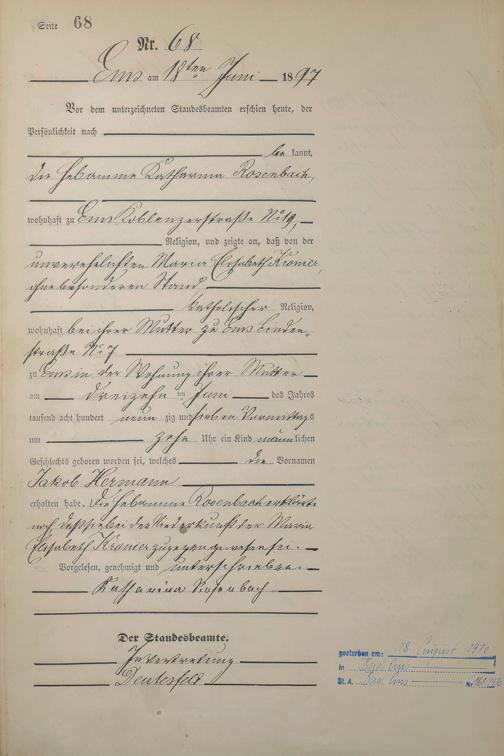 Seite 68
Nr. 68
Ems am 18ten Juni 1897
Vor dem unterzeichneten Standesbeamten erschien heute, der
Persönlichkeit nach
bekannt,
die Hebamme Katharina Rosenbach,
wohnhaft zu Ems Koblenzerstraße No 19,
Religion, und zeigte an, daß von der
unverehelichten Maria Elisabeth Krömer,
ohne besonderen Stand
katholischer Religion,
wohnhaft bei ihrer Mutter zu Ems Linden-
straße No 7
zu Ems in der Wohnung ihrer Mutter
am dreizehn im Juni des Jahres
tausend acht hundert neunzig und sieben Vormittags
um zehn Uhr ein Kind männlichen
Geschlechts geboren worden sei, welches die Vornamen
Jakob Hermann
erhalten habe. Die Hebamme Rosenbach erklärte
noch, daß sie bei der Niederkunft der Maria
Elisabeth Krömer zugegen gewesen sei.
Vorgelesen, genehmigt und unterschrieben
Katharina Rosenbach
Der Standesbeamte.
In Vertretung
gestorben am: 18. August 19
in Bad Ems
St. A. Bad Ems Nr.